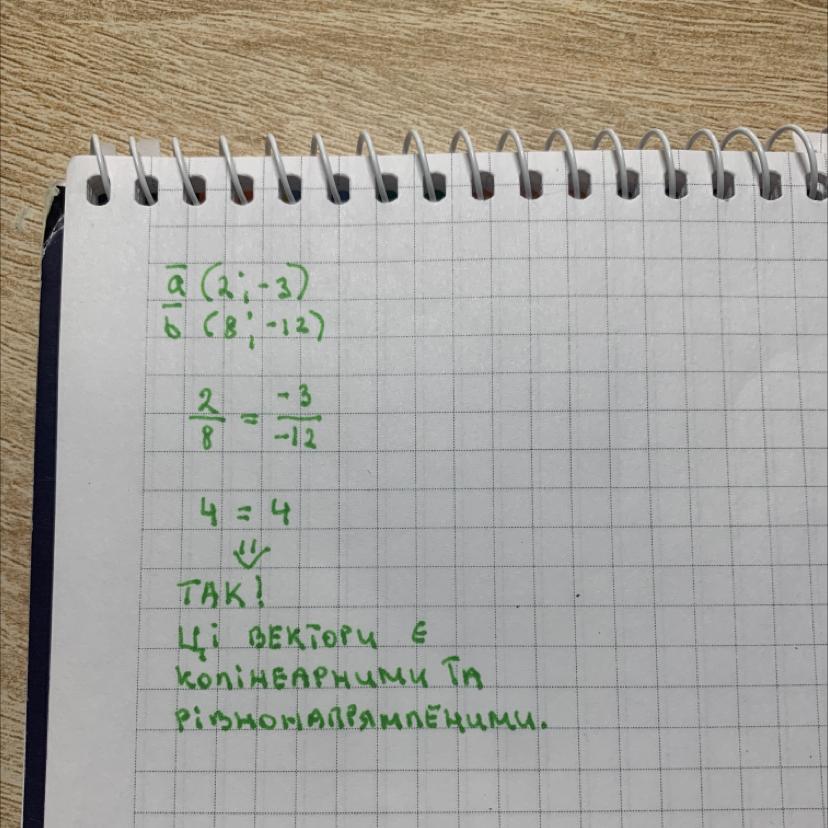 a̅ (2; -3)
b̅ (8; -12)
2/8 = -3/-12
4 = 4
⇓
ТАК!
Ці ВЕКТОРИ Є
КОЛІНЕАРНИМИ ТА
РІВНОНАПРЯМЛЕНИМИ.